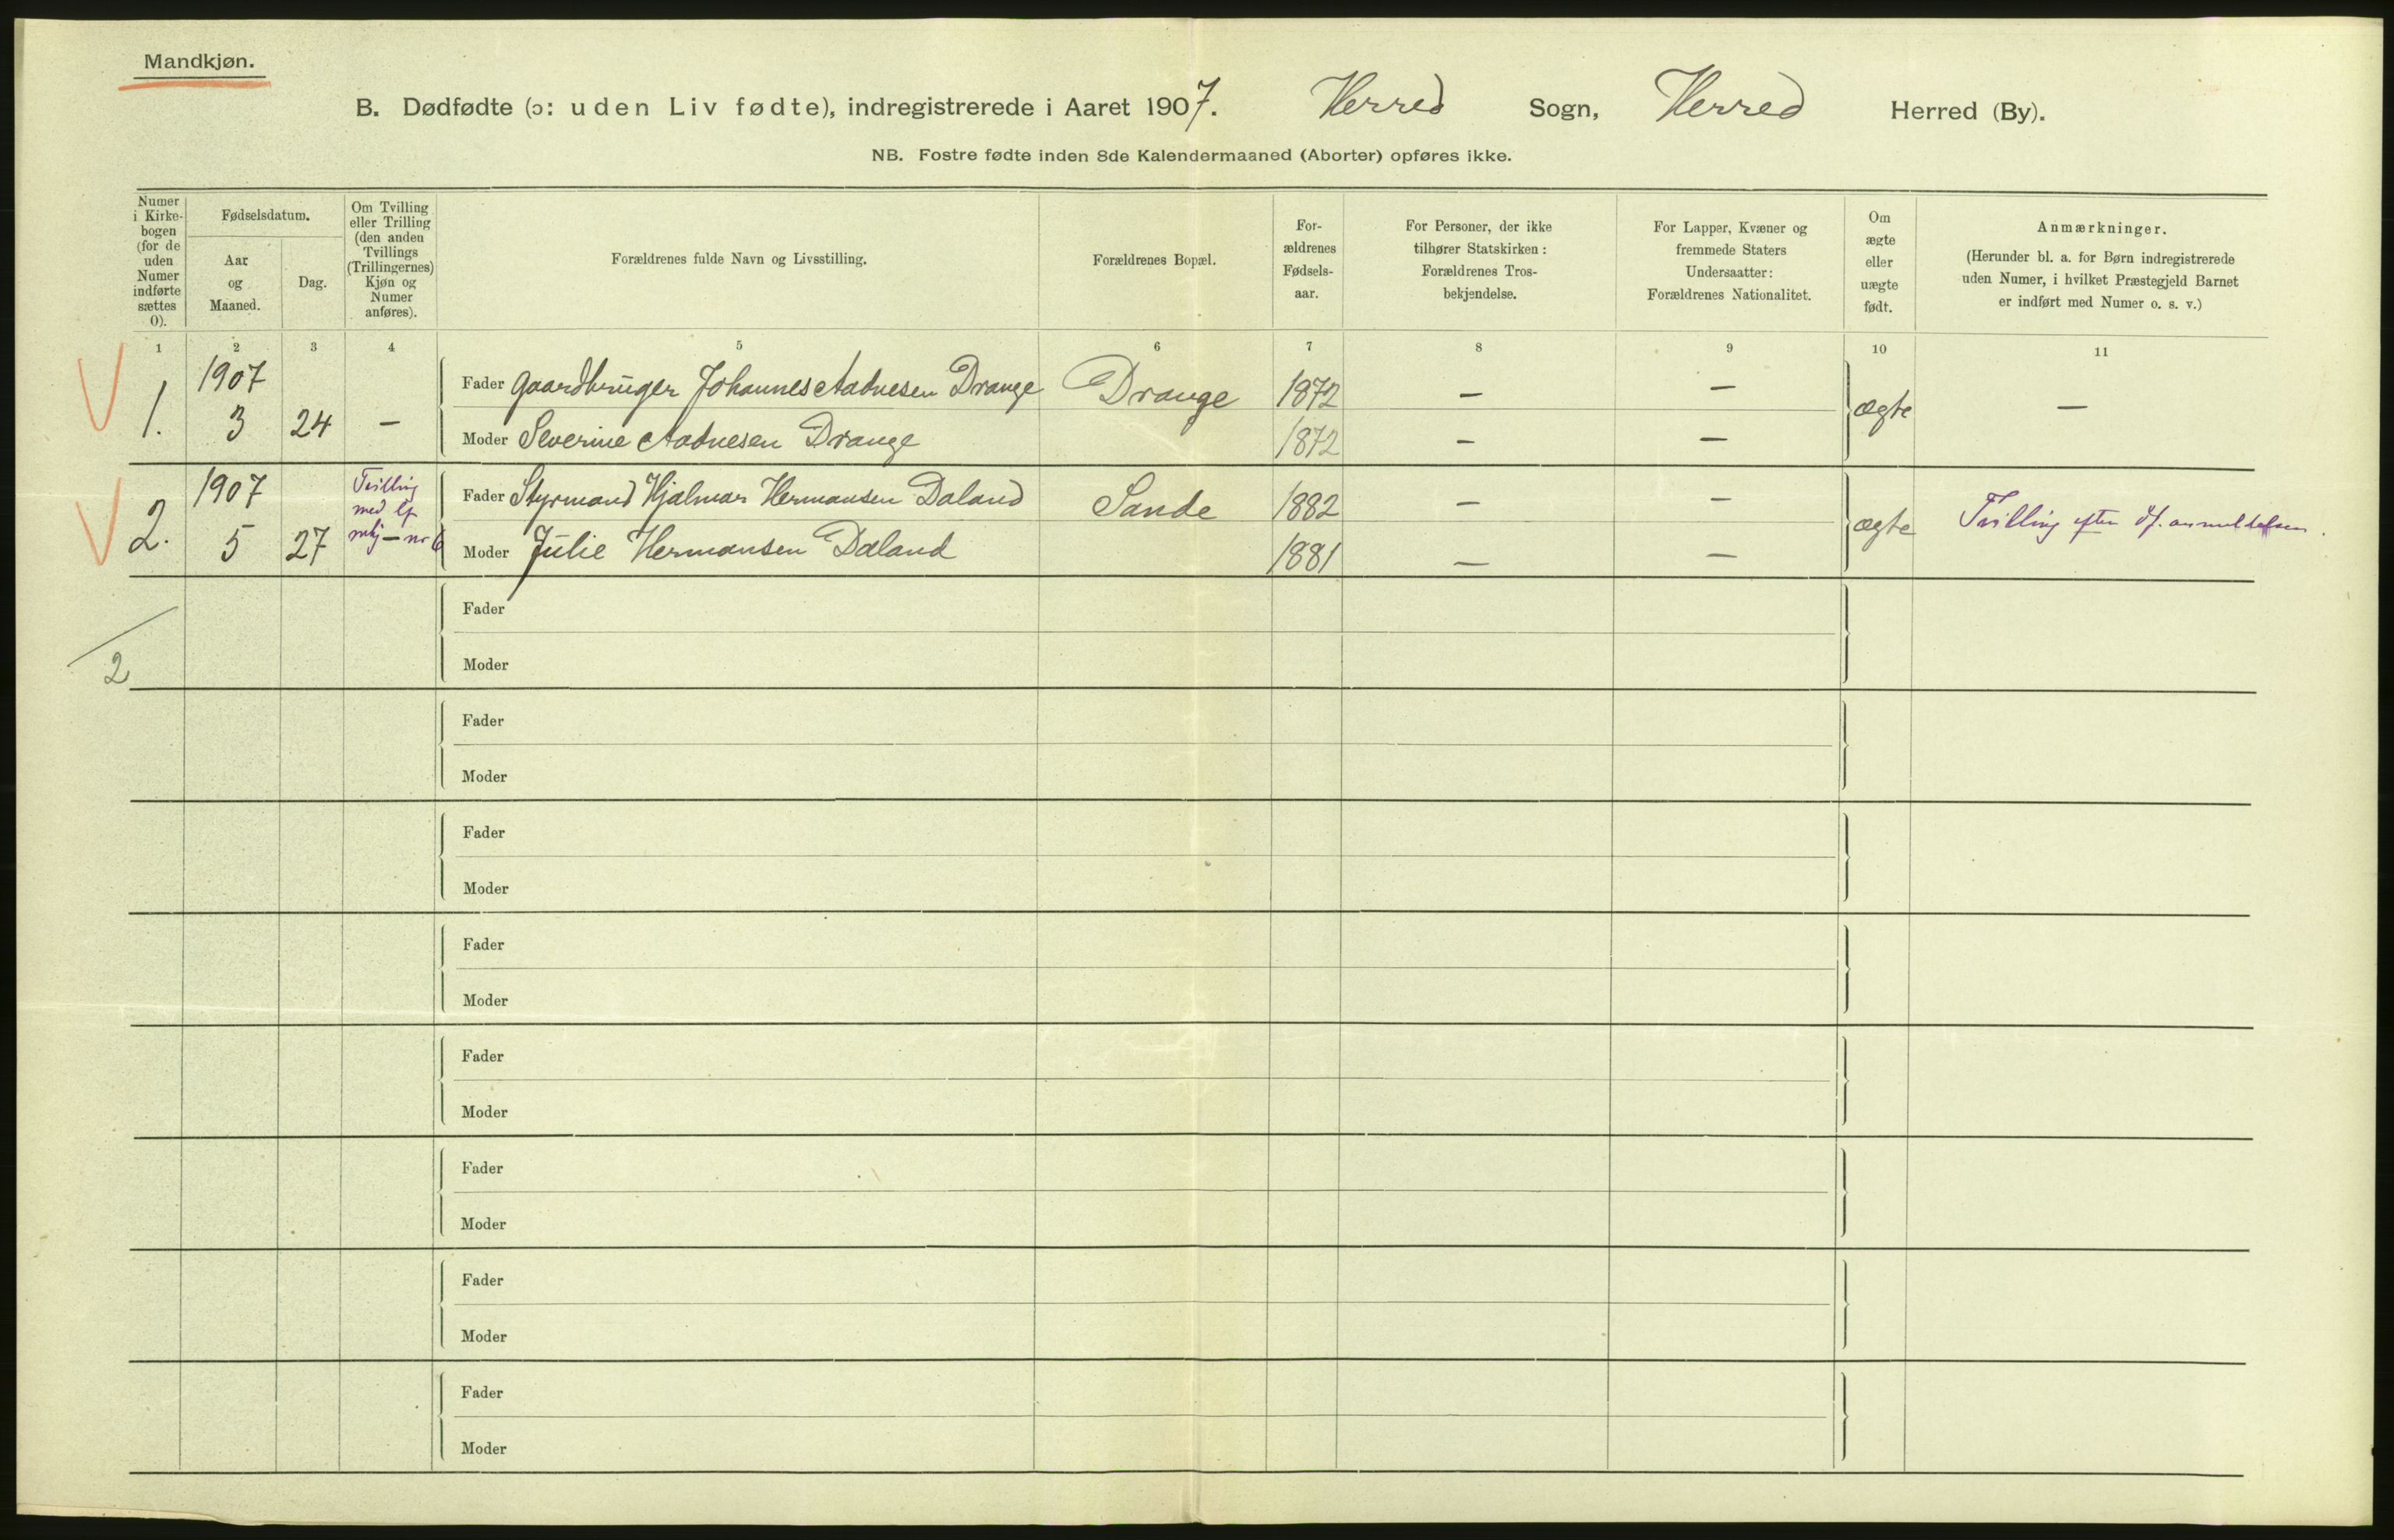 Mandkjøn.
B. Dødfødte (ɔ: uden Liv fødte), indregistrerede i Aaret 1907. Herred Sogn, Herred Herred (By).
NB. Fostre fødte inden 8de Kalendermaaned (Aborter) opføres ikke.
Numer
i Kirke-
bogen
(for de
uden
Numer
indførte
sættes
0).
Fødselsdatum.
Aar
og
Maaned.
Dag.
Om Tvilling
eller Trilling
(den anden
Tvillings
(Trillingernes)
Kjøn og
Numer
anføres).
Forældrenes fulde Navn og Livsstilling.
Forældrenes Bopæl.
For-
ældrenes
Fødsels-
aar.
For Personer, der ikke
tilhører Statskirken:
Forældrenes Tros-
bekjendelse.
For Lapper, Kvæner og
fremmede Staters
Undersaatter:
Forældrenes Nationalitet.
Om
ægte
eller
uægte
født.
Anmærkninger.
(Herunder bl. a. for Børn indregistrerede
uden Numer, i hvilket Præstegjeld Barnet
er indført med Numer o. s. v.)
1 2 3 4 5 6 7 8 9 10 11
1. 1907 3 24 –
Fader Gaardbruger Johannes Aadnesen Drange Drange 1872 – –
Moder Severine Aadnesen Drange 1872 – –
ægte –
2. 1907 5 27
Tvilling
med
nr 6
Fader Styrmand Hjalmar Hermansen Daland Sande 1882 – –
Moder Julie Hermansen Daland 1881 – –
ægte Tvilling efter df. anmeldelsen.
2
Fader
Moder
Fader
Moder
Fader
Moder
Fader
Moder
Fader
Moder
Fader
Moder
Fader
Moder
Fader
Moder